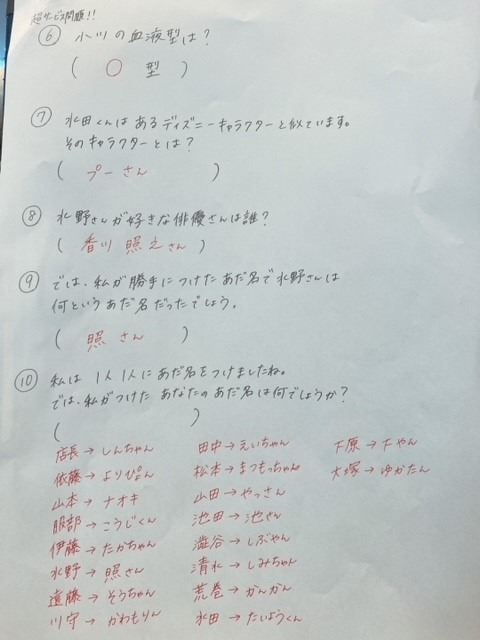 超サービス問題!!
⑥ 小川の血液型は?
( ○ 型 )
⑦ 水田くんはあるディズニーキャラクターと似ています。
そのキャラクターとは?
( プーさん )
⑧ 水野さんが好きな俳優さんは誰?
( 香川 照之さん )
⑨ では、私が勝手につけたあだ名で水野さんは
何というあだ名だったでしょう。
( 照さん )
⑩ 私は 1人1人にあだ名をつけましたね。
では、私がつけた あなたのあだ名は何でしょうか?
( )
店長→しんちゃん
依藤→よりぴょん
山本→ナオキ
服部→こうじくん
伊藤→たかちゃん
水野→照さん
遠藤→そうちゃん
川守→かわもりん
田中→えいちゃん
松本→まつもっちゃん
山田→やっさん
池田→池さん
澁谷→しぶやん
清水→しみちゃん
荒巻→かんかん
水田→たいようくん
下原→下やん
大塚→ゆかたん